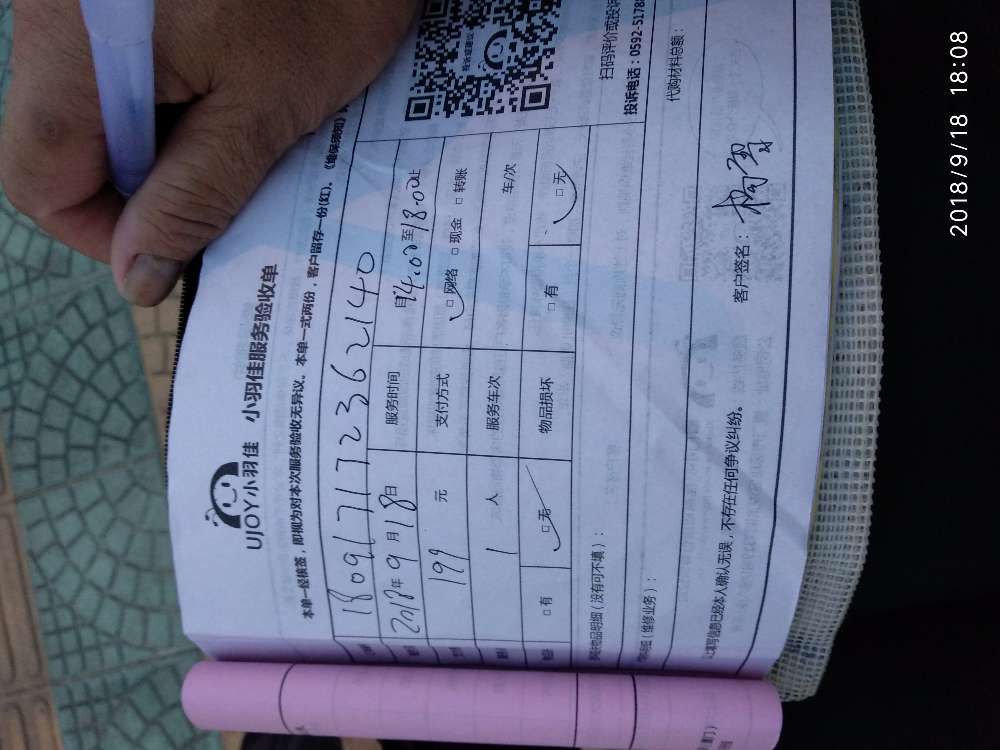 UJOY小羽佳 小羽佳服务验收单
本单一经核签，即视为对本次服务验收无异议。本单一式两份，客户留存一份(红)。《维保须知》
1809171723362140
2018年9月18日 服务时间 自14:00至18:00止
199 元 支付方式 □网络 □现金 □转账
1 人 服务车次 车/次
□有 □无 物品损坏 □有 □无
损坏物品明细（没有可不填）：
（维修业务）：
代购材料总额：
以上填写信息已经本人确认无误，不存在任何争议纠纷。
客户签名：
投诉建议
扫码评价或投诉
投诉电话：0592-5178
2018/9/18 18:08